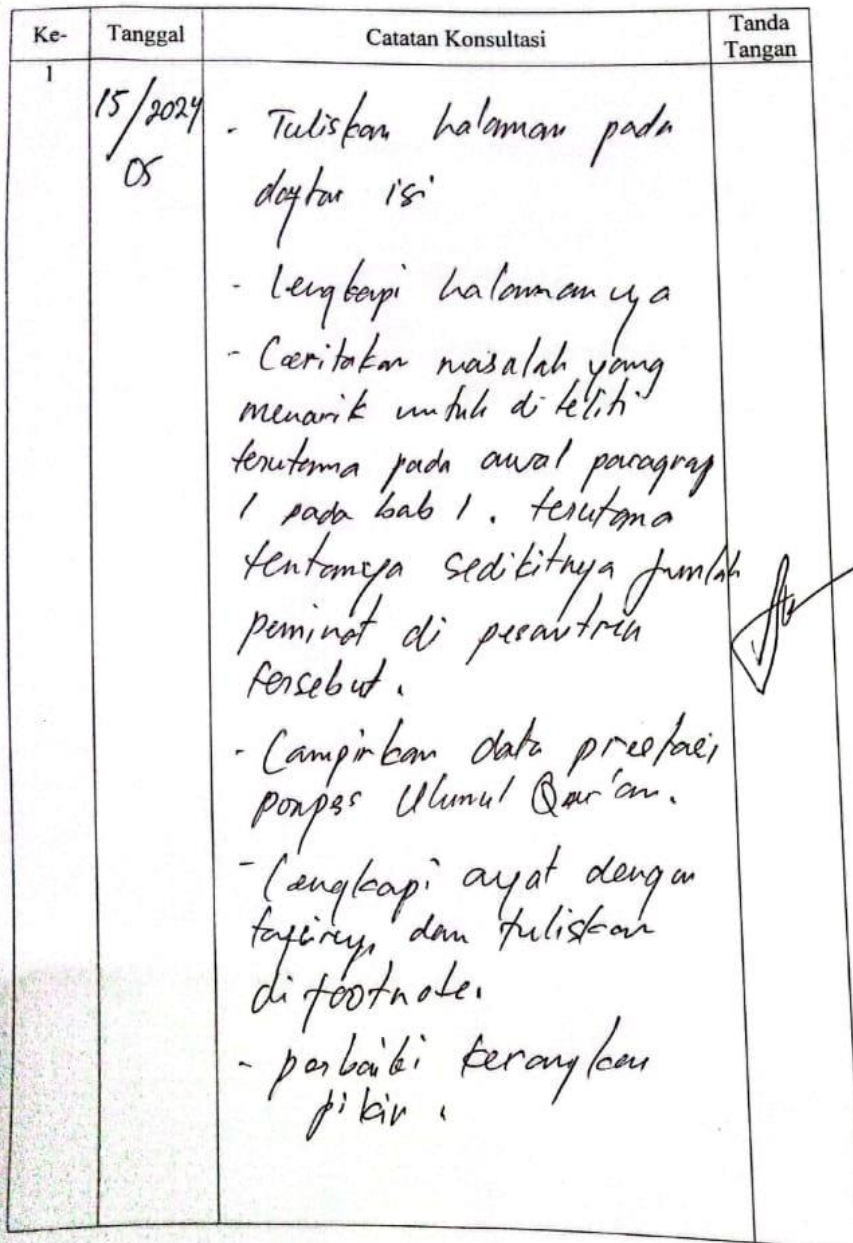 Ke- Tanggal Catatan Konsultasi Tanda Tangan
1 15/2024
05
- Tuliskan halaman pada
daftar isi
- Lengkapi halamannya
- Ceritakan masalah yang
menarik untuk di teliti
terutama pada awal paragrap
1 pada bab 1. terutama
tentangya sedikitnya jumlah
peminat di pesantren
tersebut.
- Lampirkan data prestasi
ponpes Ulumul Qur'an.
- Lengkapi ayat dengan
tafsirny, dan tuliskan
di footnote.
- perbaiki kerangkan
pikir.